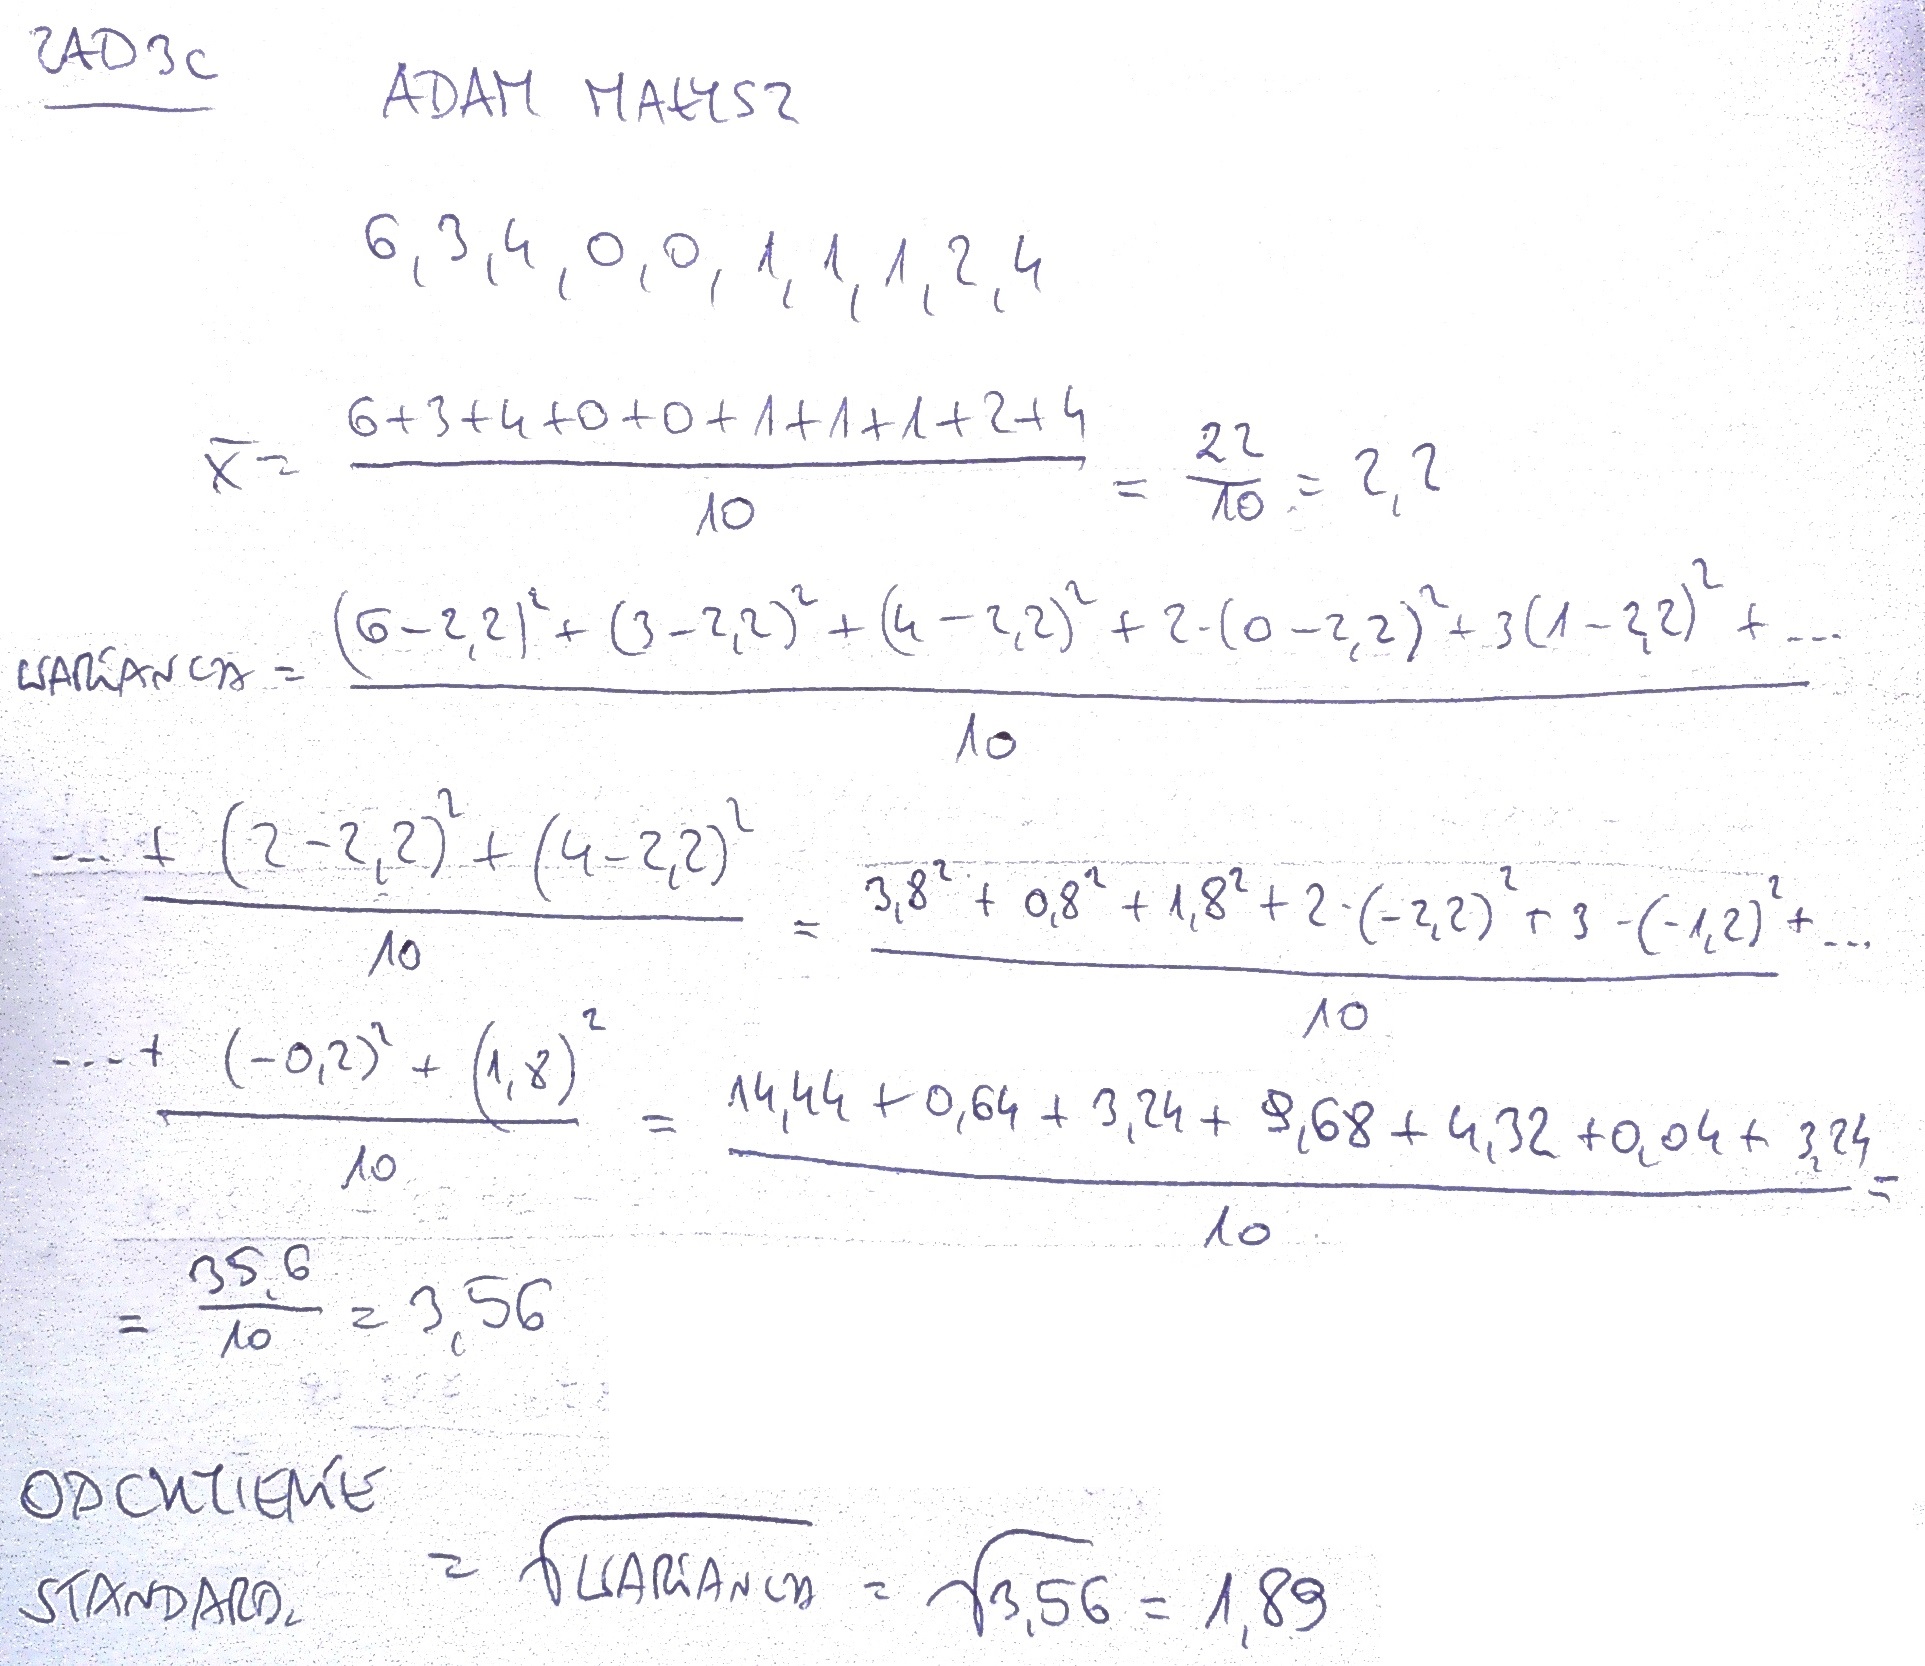 ZAD 3c
ADAM MAŁYSZ
6, 3, 4, 0, 0, 1, 1, 1, 2, 4
x̄ = (6+3+4+0+0+1+1+1+2+4)/10 = 22/10 = 2,2
WARIANCJA = ((6-2,2)² + (3-2,2)² + (4-2,2)² + 2·(0-2,2)² + 3(1-2,2)² + .../10
... + (2-2,2)² + (4-2,2)²/10 = 3,8² + 0,8² + 1,8² + 2·(-2,2)² + 3·(-1,2)² + .../10
... + (-0,2)² + (1,8)²/10 = 14,44 + 0,64 + 3,24 + 9,68 + 4,32 + 0,04 + 3,24/10 =
= 35,6/10 = 3,56
ODCHYLENIE
STANDARD. = √WARIANCJA = √3,56 = 1,89